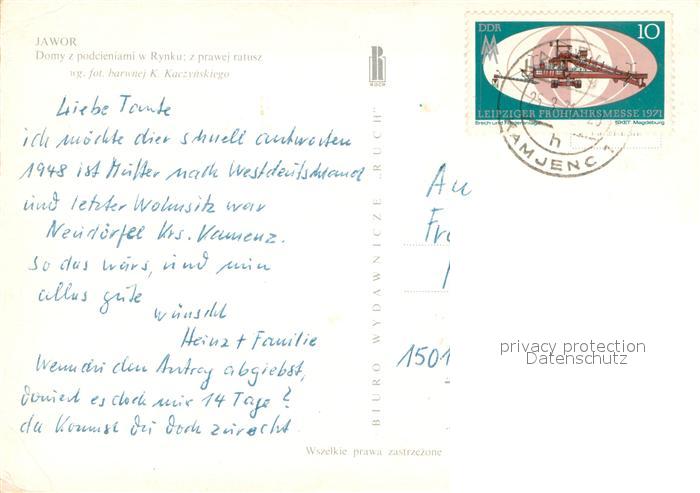 JAWOR
Domy z podcieniami w Rynku; z prawej ratusz
wg. fot. barwnej K. Kaczyńskiego
RUCH
DDR
10
LEIPZIGER FRÜHJAHRSMESSE 1971
Brech und Förderanlage SKET Magdeburg
KAMJENC
h
Liebe Tante
ich möchte dier schnell antworten
1948 ist Mutter nach Westdeutschland
und letzter Wohnsitz war
Neudörfel Krs. Kamenz.
so das wärs, und nun
alles gute
wünscht
Heinz + Familie
Wenn du den Antrag abgiebst,
dauert es doch nur 14 Tage?
da kommst du doch zurecht.
BIURO WYDAWNICZE „RUCH"
An
Fr
1501
privacy protection
Datenschutz
Wszelkie prawa zastrzeżone